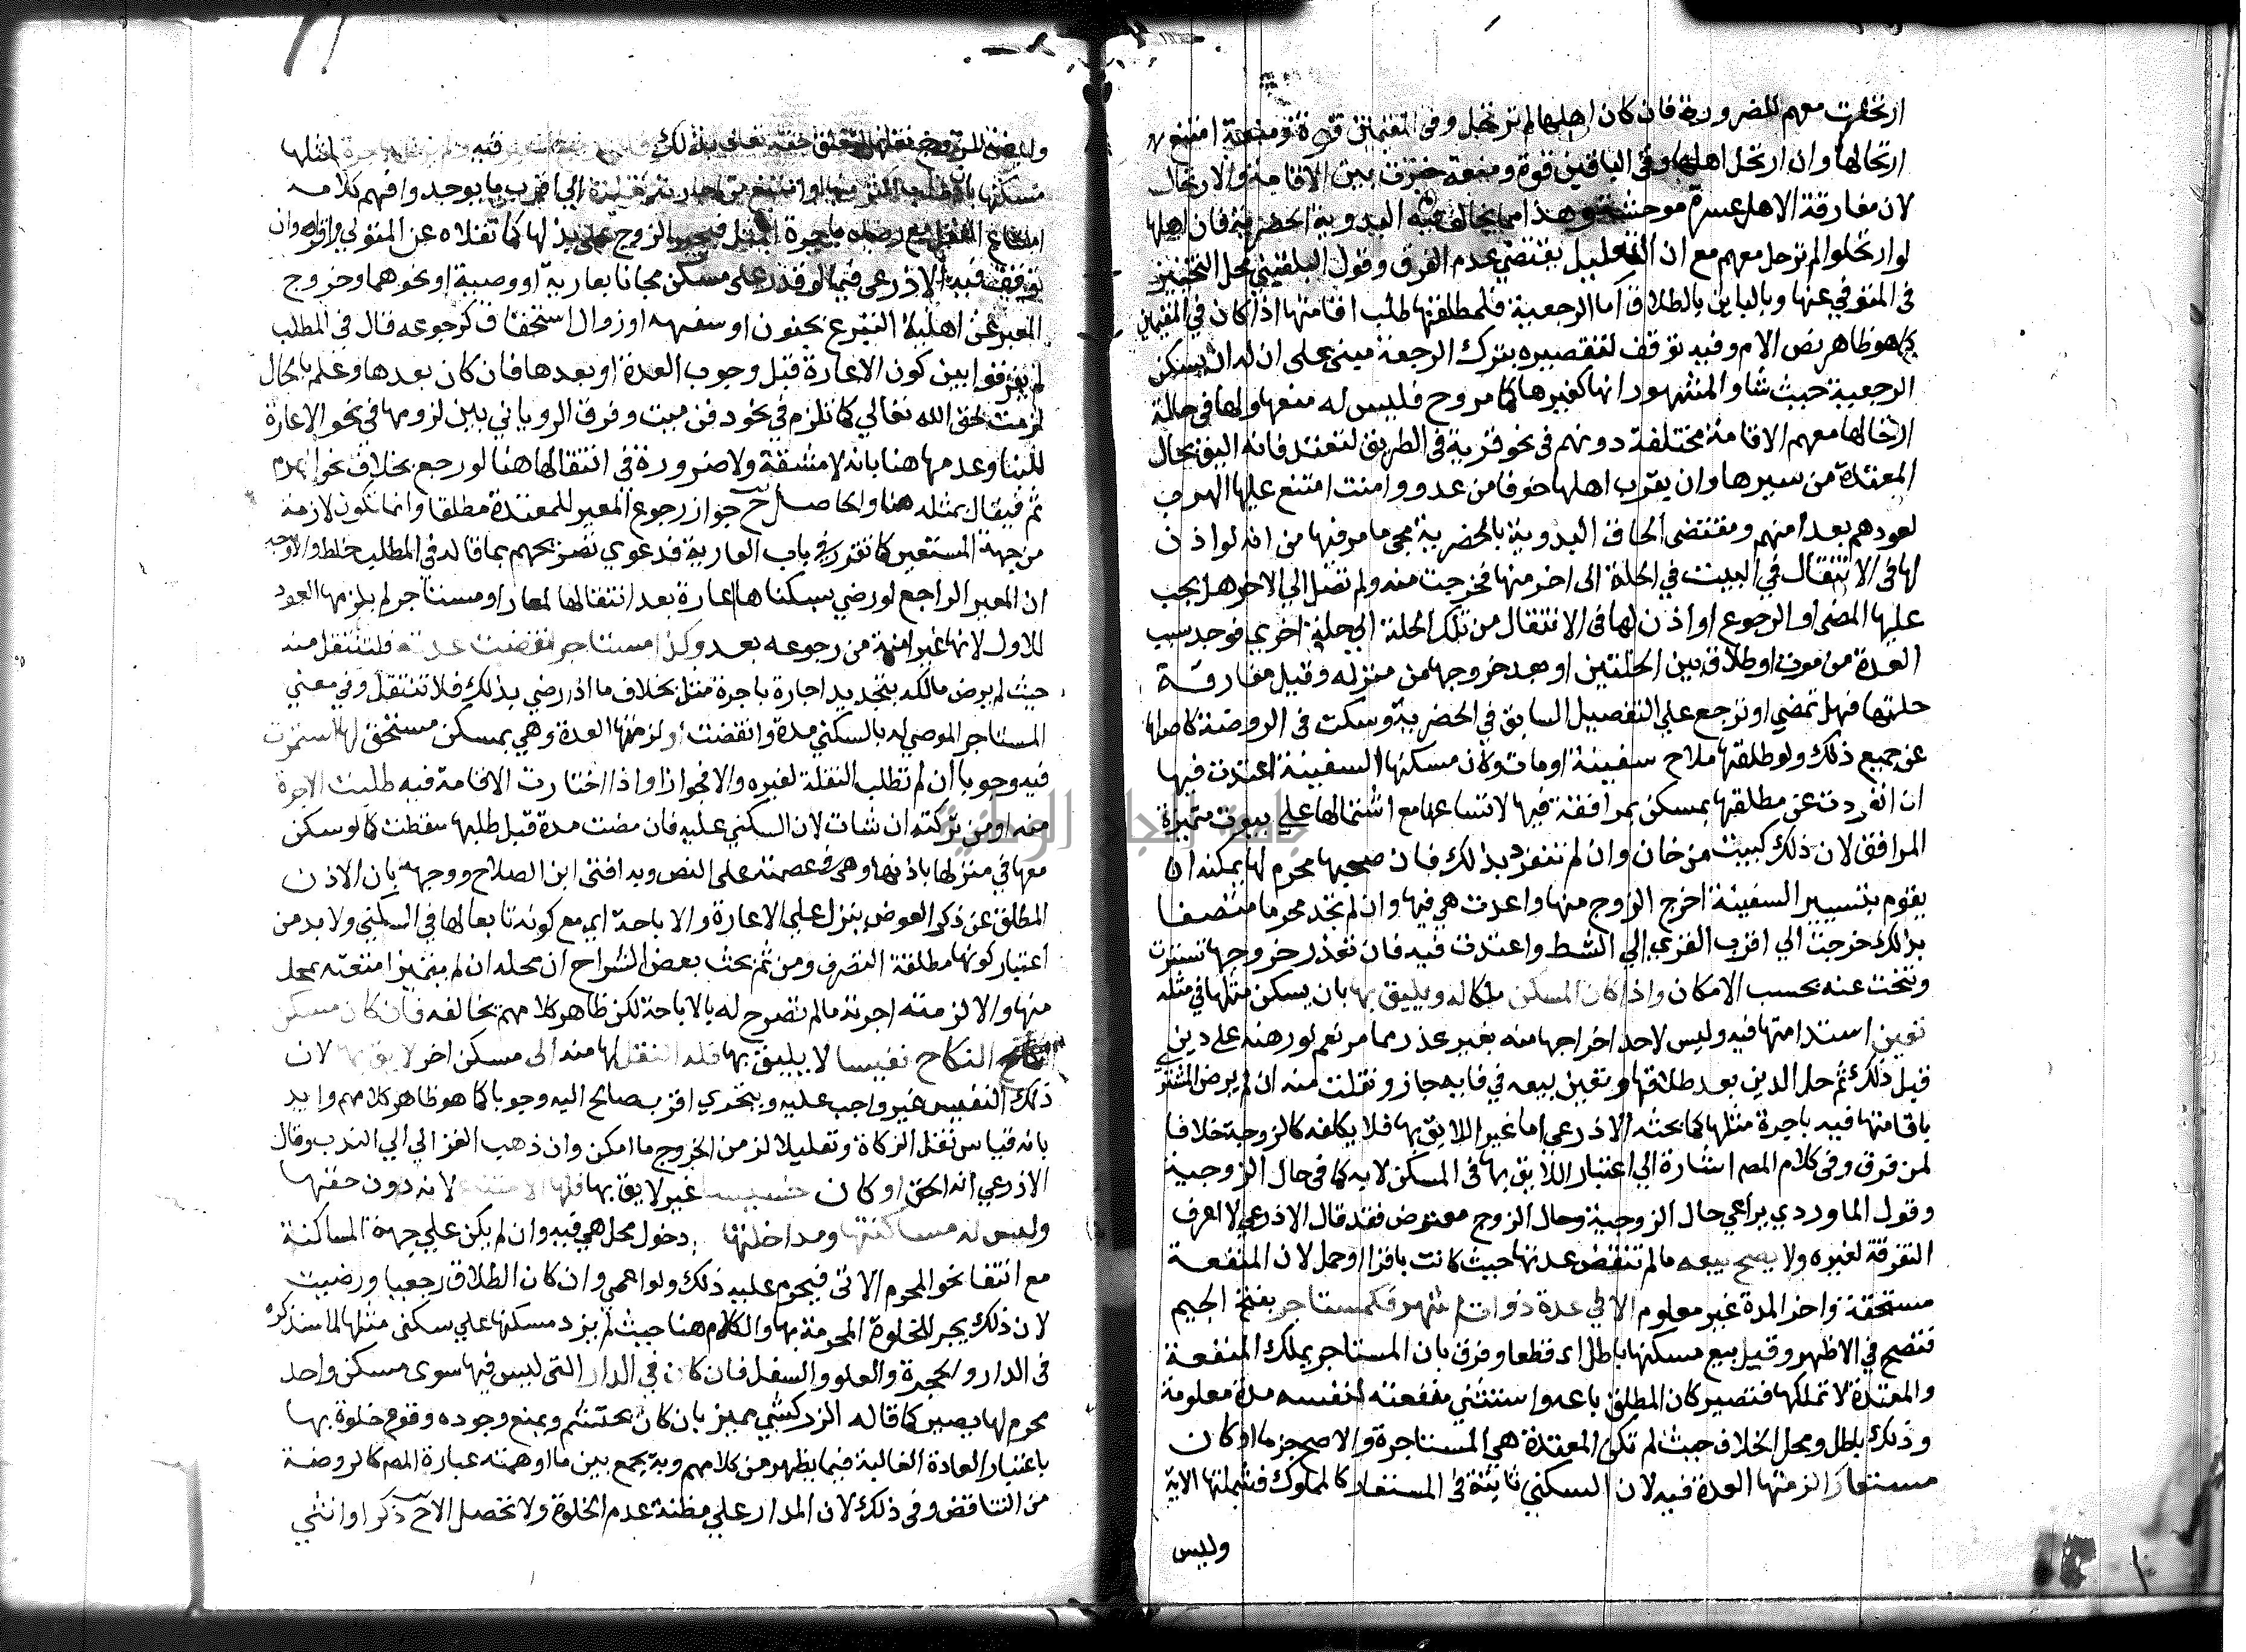 ارتحلت معهم للضرورة فان كان اهلها لم ترتحل وفى المقيمين قوة ومنعة امتنع
ارتحالها وان ارتحل اهلها وفى الباقين قوة ومنعة خيرت بين الاقامة والارتحال
لان مفارقة الاهل عسرة موحشة وهذا مما يخالف فيه البدوية الحضرية فان اهلها
لو ارتحلوا لم ترحل معهم مع ان التعليل يقتضي عدم الفرق وقول البلقيني محل التخيير
فى المتوفي عنها وبالباين بالطلاق اما الرجعية فلمطلقها طلب اقامتها اذا كان في المقيمين
كما هو ظاهر نص الام وفيه توقف لتقصيره بترك الرجعة مبنى على ان له ان يسكن
الرجعية حيث شا والمشهور انها كغيرها كما مر وح فليس له منعها ولها فى حالة
ارتحالها معهم الاقامة مختلفة دونهم فى نحو قرية فى الطريق لتعتد فانه اليق بحال
المعتدة من سيرها وان يقرب اهلها خوفا من عدو وامنت امتنع عليها الهرب
لعودهم بعد امنهم ومقتضى الحاق البدوية بالحضرية مجى ما مر فيها من انه لو اذن
لها فى الانتقال في البيت في الحلة الى اخر منها فخرجت منه ولم تصل الي الاخر هل يجب
عليها المضى او الرجوع او اذن لها فى الانتقال من تلك الحلة الي حلة اخرى فوجد سبب
العدة من موت او طلاق بين الحلتين او بعد خروجها من منزله وقبل مفارقة
حلتها فهل تمضي او ترجع علي التفصيل السابق في الحضرية وسكت فى الروضة كاصلها
عن جميع ذلك ولو طلقها ملاح سفينة او مات وكان مسكنها السفينة اعتدت فيها
ان انفردت عن مطلقها بمسكن بمرافقه فيها لاتساعها مع اشتمالها علي بيوت متميزة
المرافق لان ذلك كبيت من خان وان لم تنفرد بذلك فان صحبها محرم لها يمكنه ان
يقوم بتسيير السفينة اخرج الزوج منها واعتدت هي فيها وان لم تجد محرما متصفا
بذلك خرجت الي اقرب القري الي الشط واعتدت فيه فان تعذر خروجها تسترت
وتنحت عنه بحسب الامكان واذا كان المسكن ملكا له ويليق بها بان يسكن مثلها في مثله
تعين استدامتها فيه وليس لاحد اخراجها منه بغير عذر مما مر نعم لو رهنه على دين
قبل ذلك ثم حل الدين بعد طلاقها وتعين بيعه في وفايه جاز ونقلت منه ان لم يرض المشتري
باقامتها فيه باجرة مثلها كما بحثه الاذرعي اما غير اللايق بها فلا يكلفه كالزوجة خلافا
لمن فرق وفى كلام المصم اشارة الي اعتبار اللايق بها فى المسكن لا به كما فى حال الزوجية
وقول الماوردي يراعي حال الزوجية وحال الزوج معترض فقد قال الاذرعي لا اعرف
التفرقة لغيره ولا يصح بيعه مالم تنقض عدتها حيث كانت باقرا او حمل لان المنفعة
مستحقة واخر المدة غير معلوم الا في عدة ذوات شهر فكمستاجر بفتح الجيم
فتصح في الاظهر وقيل بيع مسكنها باطل اى قطعا وفرق بان المستاجر يملك المنفعة
والمعتدة لا تملكها فتصير كان المطلق باعه واستثني منفعته لنفسه مدة معلومة
وذلك باطل ومحل الخلاف حيث لم تكن المعتدة هى المستاجرة والا صح جزما او كان
مستعارا لزمتها العدة فيه لان السكني ثابتة فى المستعار كالمملوك فشملتها الاية
وليس
وليس للزوج نقلها لتعلق حقه تعالى بذلك
مسكنها
امتناع النقل مع رضاه باجرة المثل فيجبر الزوج على بذلها كما نقلاه عن المتولي واقراه وان
توقف فيه الاذرعى فيما لو قدر على مسكن مجانا بعارية او وصية او نحوهما وخروج
المعير عن اهلية التبرع بجنون او سفه او زوال استحقاق كرجوعه قال فى المطلب
لم يفرقوا بين كون الاعارة قبل وجوب العدة او بعدها فان كان بعدها وعلم بالحال
لزمت لحق الله تعالي كما تلزم في نحو دفن ميت وفرق الروياني بين لزومها في نحو الاعارة
للبنا وعدمها هنا بانه لا مشقة ولا ضرورة في انتقالها هنا لو رجع بخلاف نحو
ثم فيقال بمثله هنا والحاصل ح جواز رجوع المعير للمعتدة مطلقا وانما تكون لازمة
من جهة المستعير كما تقرر في باب العارية فدعوي تصريحهم بما قاله فى المطلب خلط والاوجه
ان المعير الراجع لو رضي بسكناها اعارة بعد انتقالها لمعار او مستاجر لم يلزمها العود
للاول لانها غير امنة من رجوعه بعد وكذا مستاجر انقضت مدته فلتنتقل منه
حيث لم يرض مالكه بتجديد اجارة باجرة مثل بخلاف ما اذا رضي بذلك فلا تنتقل وفي معني
المستاجر الموصي له بالسكني مدة وانقضت او لزمتها العدة وهي بمسكن مستحق لها استمرت
فيه وجوبا ان لم تطلب النقلة لغيره والا فجوازا واذا اختارت الاقامة فيه طلبت الاجرة
منه او من تركته ان شات لان السكني عليه فان مضت مدة قبل طلبها سقطت كما لو سكن
معها في منزلها باذنها وهى فى عصمته على النص وبه افتى ابن الصلاح ووجهه بان الاذن
المطلق عن ذكر العوض ينزل علي الاعارة والاباحة اي مع كونه تابعا لها في السكني ولا بد من
اعتبار كونها مطلقة التصرف ومن ثم بحث بعض الشراح ان محله ان لم يتميز امتعته بمحل
منها والا لزمته اجرته مالم تصرح له بالاباحة لكن ظاهر كلامهم يخالفه فان كان مسكن
النكاح نفيسا لا يليق بها فله النقل لها منه الى مسكن اخر لايق بها لان
ذلك النفيس غير واجب عليه ويتحري اقرب صالح اليه وجوبا كما هو ظاهر كلامهم وايد
بانه قياس نقل الزكاة وتقليلا لزمن الخروج ما امكن وان ذهب الغزالي الي الندب وقال
الاذرعي انه الحق او كان خسيسا غير لايق بها فلها الامتناع لانه دون حقها
وليس له مساكنتها ومداخلتها دخول محل هي فيه وان لم يكن علي جهة المساكنة
مع انتفا نحو المحرم الاتى فيحرم عليه ذلك ولو اعمي وان كان الطلاق رجعيا ورضيت
لان ذلك يجر للخلوة المحرمة بها والكلام هنا حيث لم يزد مسكنها علي سكنى مثلها لما سنذكره
فى الدار والحجرة والعلو والسفل فان كان في الدار التى ليس فيها سوى مسكن واحد
محرم لها بصير كما قاله الزركشي مميز بان كان يحتشم ويمنع وجوده وقوع خلوة بها
باعتبار العادة الغالبة فيما يظهر من كلامهم وبه يجمع بين ما اوهمته عبارة المصم كالروضة
من التناقض وفى ذلك لان المدار علي مظنة عدم الخلوة ولا تحصل الاح ذكرا او انثي